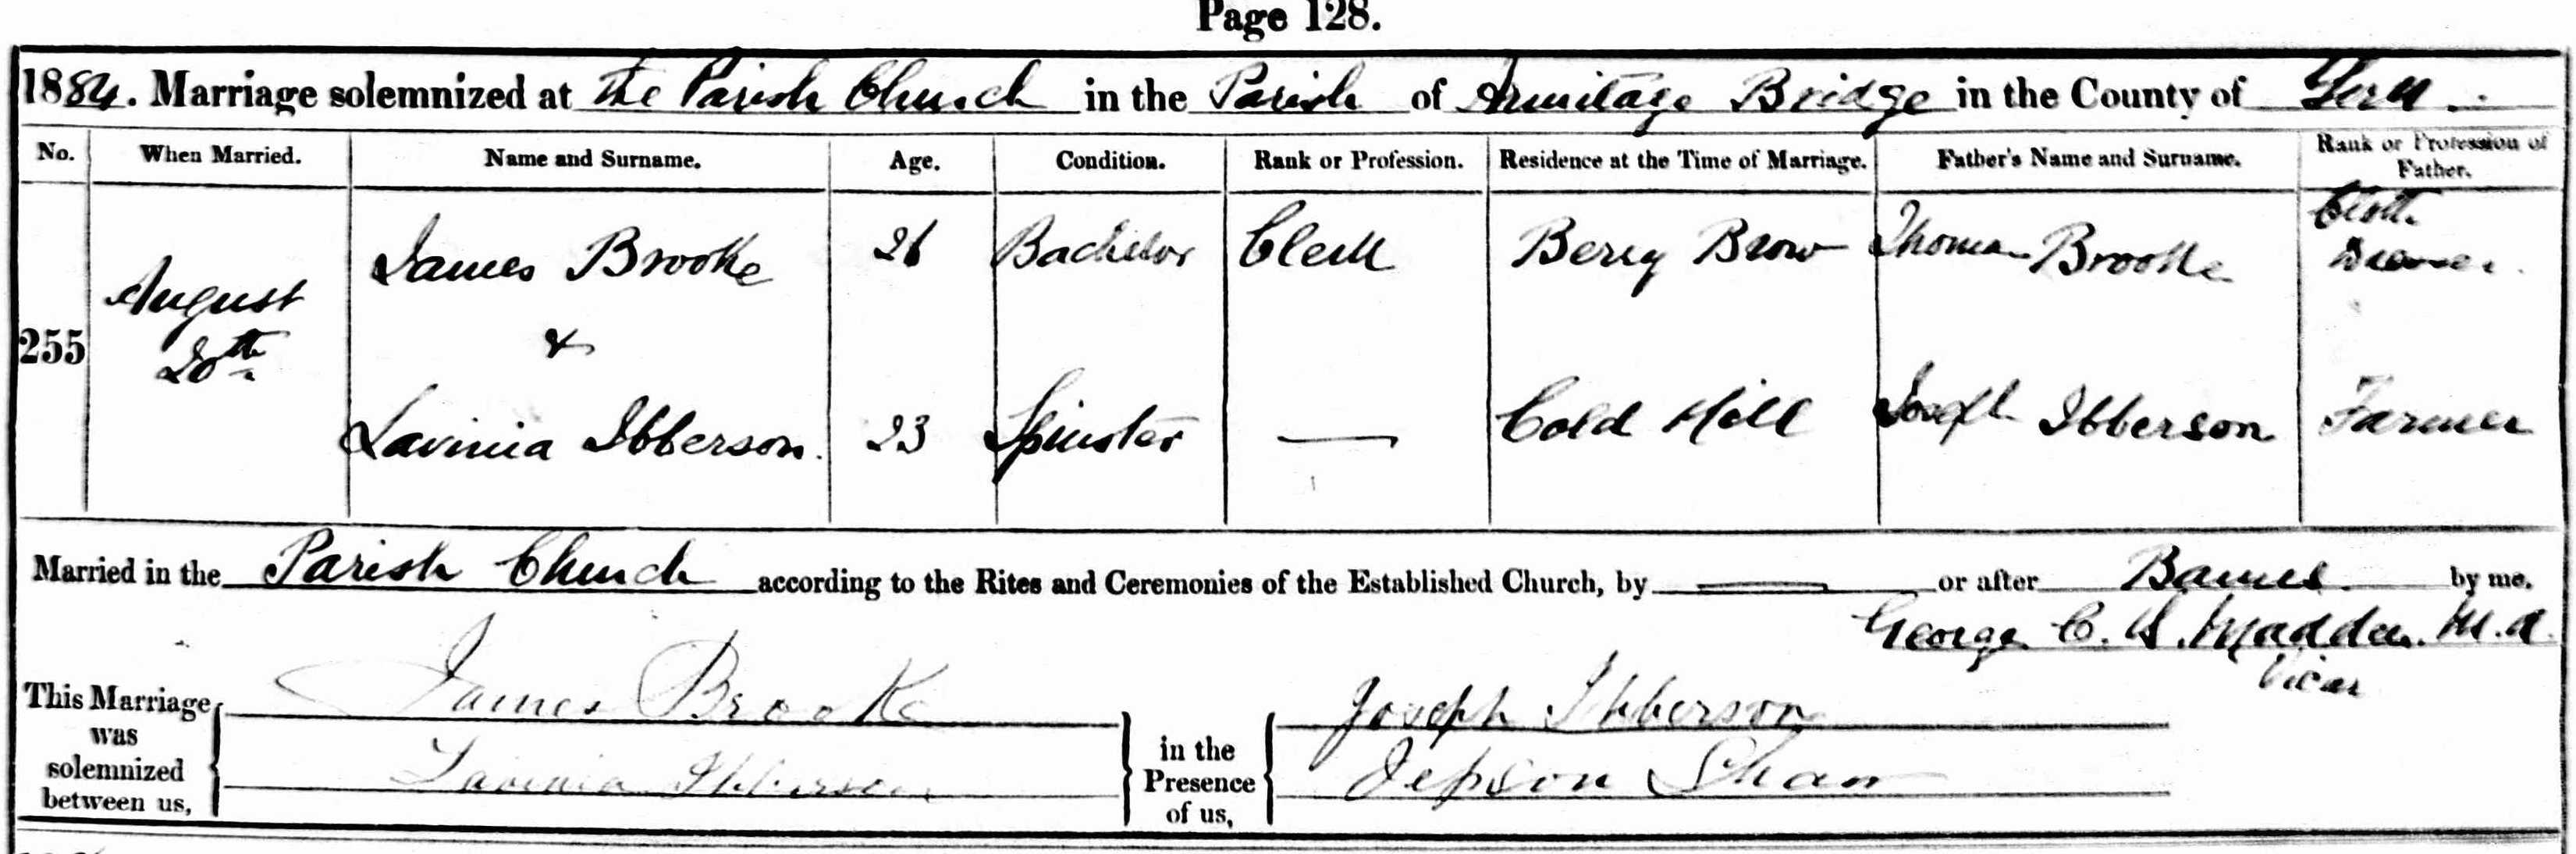 Page 128.
1884. Marriage solemnized at the Parish Church in the Parish of Armitage Bridge in the County of York.
No. When Married. Name and Surname. Age. Condition. Rank or Profession. Residence at the Time of Marriage. Father's Name and Surname. Rank or Profession of Father.
255 August 20th
James Brooke 26 Bachelor Clerk Berry Brow Thomas Brooke Cloth
&
Lavinia Ibberson. 23 Spinster — Cold Hill Joseph Ibberson Farmer
Married in the Parish Church according to the Rites and Ceremonies of the Established Church, by —— or after Banns by me,
George C. Madden. M.A.
Vicar
This Marriage was solemnized between us,
James Brooke
Lavinia Ibberson
in the Presence of us,
Joseph Ibberson
Jepson Shaw